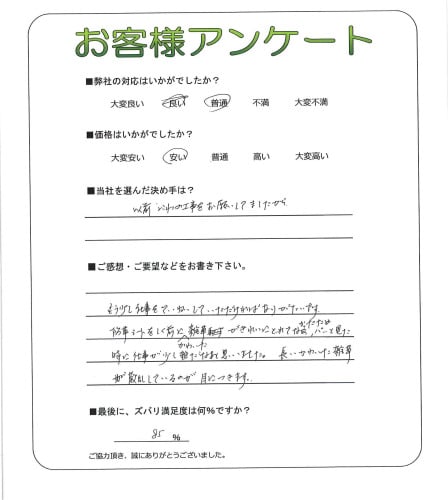 お客様アンケート
■弊社の対応はいかがでしたか？
大変良い　良い　普通　不満　大変不満
■価格はいかがでしたか？
大変安い　安い　普通　高い　大変高い
■当社を選んだ決め手は？
以前　の工事をお願いしてましたから
■ご感想・ご要望などをお書き下さい。
もう少し仕事をていねいにしていただければありがたいです。
防草シートをしく前に雑草がきれいにとれてなかったため パッと見た
かわいた
時に仕事が少し雑だなあと思いました。長いかわいた雑草
が散乱しているのが目につきます。
■最後に、ズバリ満足度は何％ですか？
85 ％
ご協力頂き、誠にありがとうございました。